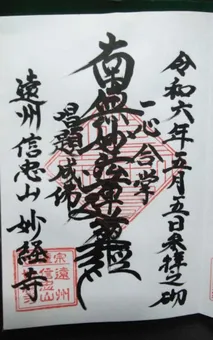 令和六年五月五日参拝之砌
一心合掌
南無妙法蓮華経
唱題成佛
遠州 信忠山 妙経寺